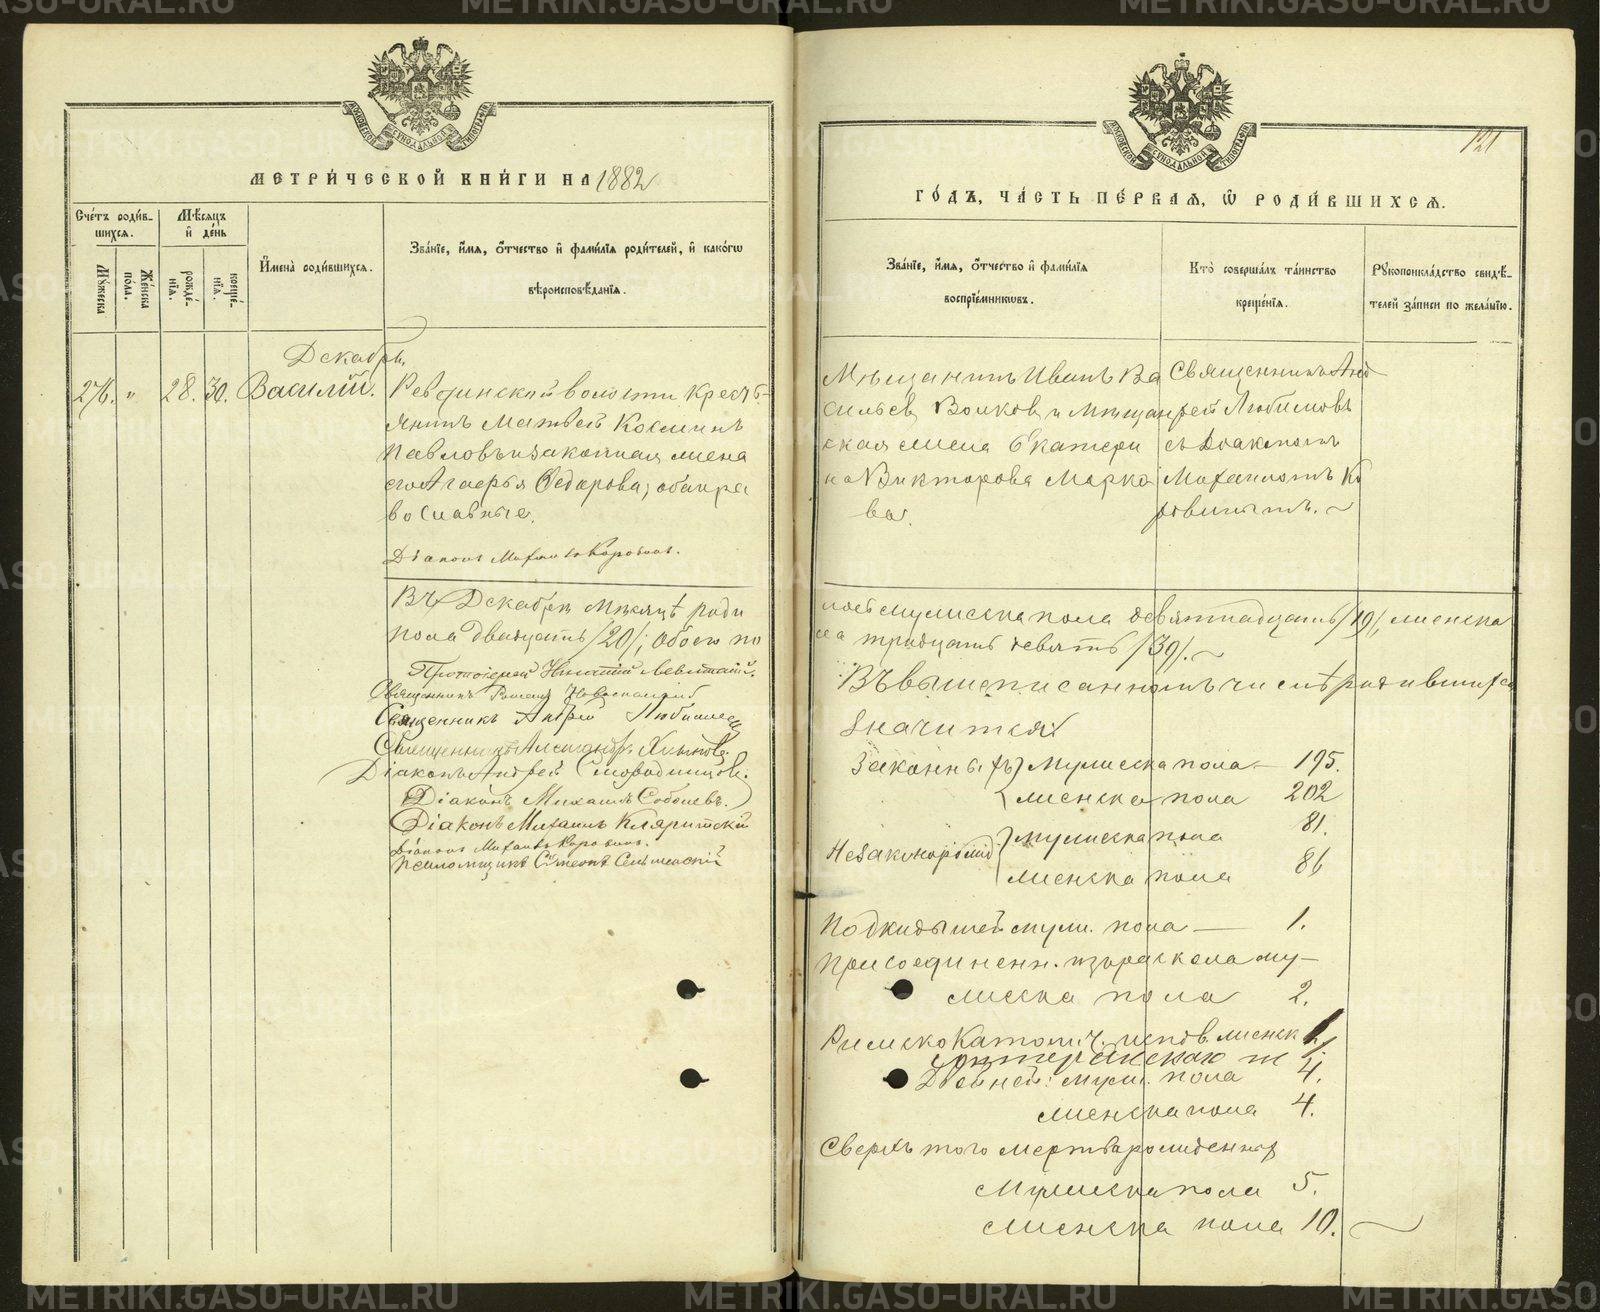 МЕТРИ́ЧЕСКОЙ КНИ́ГИ НА 1882
Сче́тъ роди́в-
шихся.
Мѣ́сяцъ
и҆ де́нь
Му́жеска
Же́нска
по́ла.
рожде́-
нїѧ.
креще́-
нїѧ.
И҆мена̀ роди́вшихся.
Зва́нїе, и҆́мя, ѻ҆́тчество и҆ фами́лїя роди́телей, и҆ како́гѡ
вѣроисповѣ́данїя.
Декабрь
276. " 28. 30. Василій.
Ревдинской волости крестъ-
янинъ Матвей Косминъ
Павловъ и законная жена
его Агафья Федорова, оба пра
вославные.
Діаконъ Михаилъ Коровинъ.
Въ Декабрѣ мѣсяцѣ роди
пола двадцать /20/, обоего по
Протоіерей Левитскій.
Священникъ
Священникъ Андрей Любимовъ
Священникъ Александръ
Діаконъ Андрей Смородинцовъ.
Діаконъ Михаилъ Соболевъ.
Діаконъ Михаилъ
Діаконъ Михаилъ Коровинъ.
Псаломщикъ Симеонъ
121
ГО́ДЪ, ЧА́СТЬ ПЕ́РВАЯ, Ѡ҆ РОДИ́ВШИХСЯ.
Зва́нїе, и҆́мя, ѻ҆́тчество и҆ фами́лїя
воспрїе́мникѡвъ.
Кто̀ соверша́лъ та́инство
креще́нїя.
Рꙋкоприкла́дство свидѣ́-
телей за́писи по жела́нїю.
Мѣщанинъ Иванъ Ва
сильевъ Волковъ и мѣщан
ская жена Екатери
на Викторова Марко
ва.
Священникъ Анд
рей Любимовъ
съ Діакономъ
Михаиломъ Ко
ровинымъ.
лось мужеска пола девятнадцать /19/, женска
ла тридцать девять /39/.
Въ вышеписанномъ числѣ родившихся
значится:
Законныхъ мужеска пола — 195.
женска пола 202
Незаконорожд мужеска пола 81.
женска пола 86
Подкидышей муж. пола — 1.
Присоединенн. изъ раскола му-
жеска пола 2.
Римско Католич. испов. женск 1.
Лютеранскаго ж 1.
Двойней: муж. пола 4.
женска пола 4.
Сверхъ того мертворожденныхъ
мужеска пола 5.
женска пола 10.
METRIKI.GASO-URAL.RU